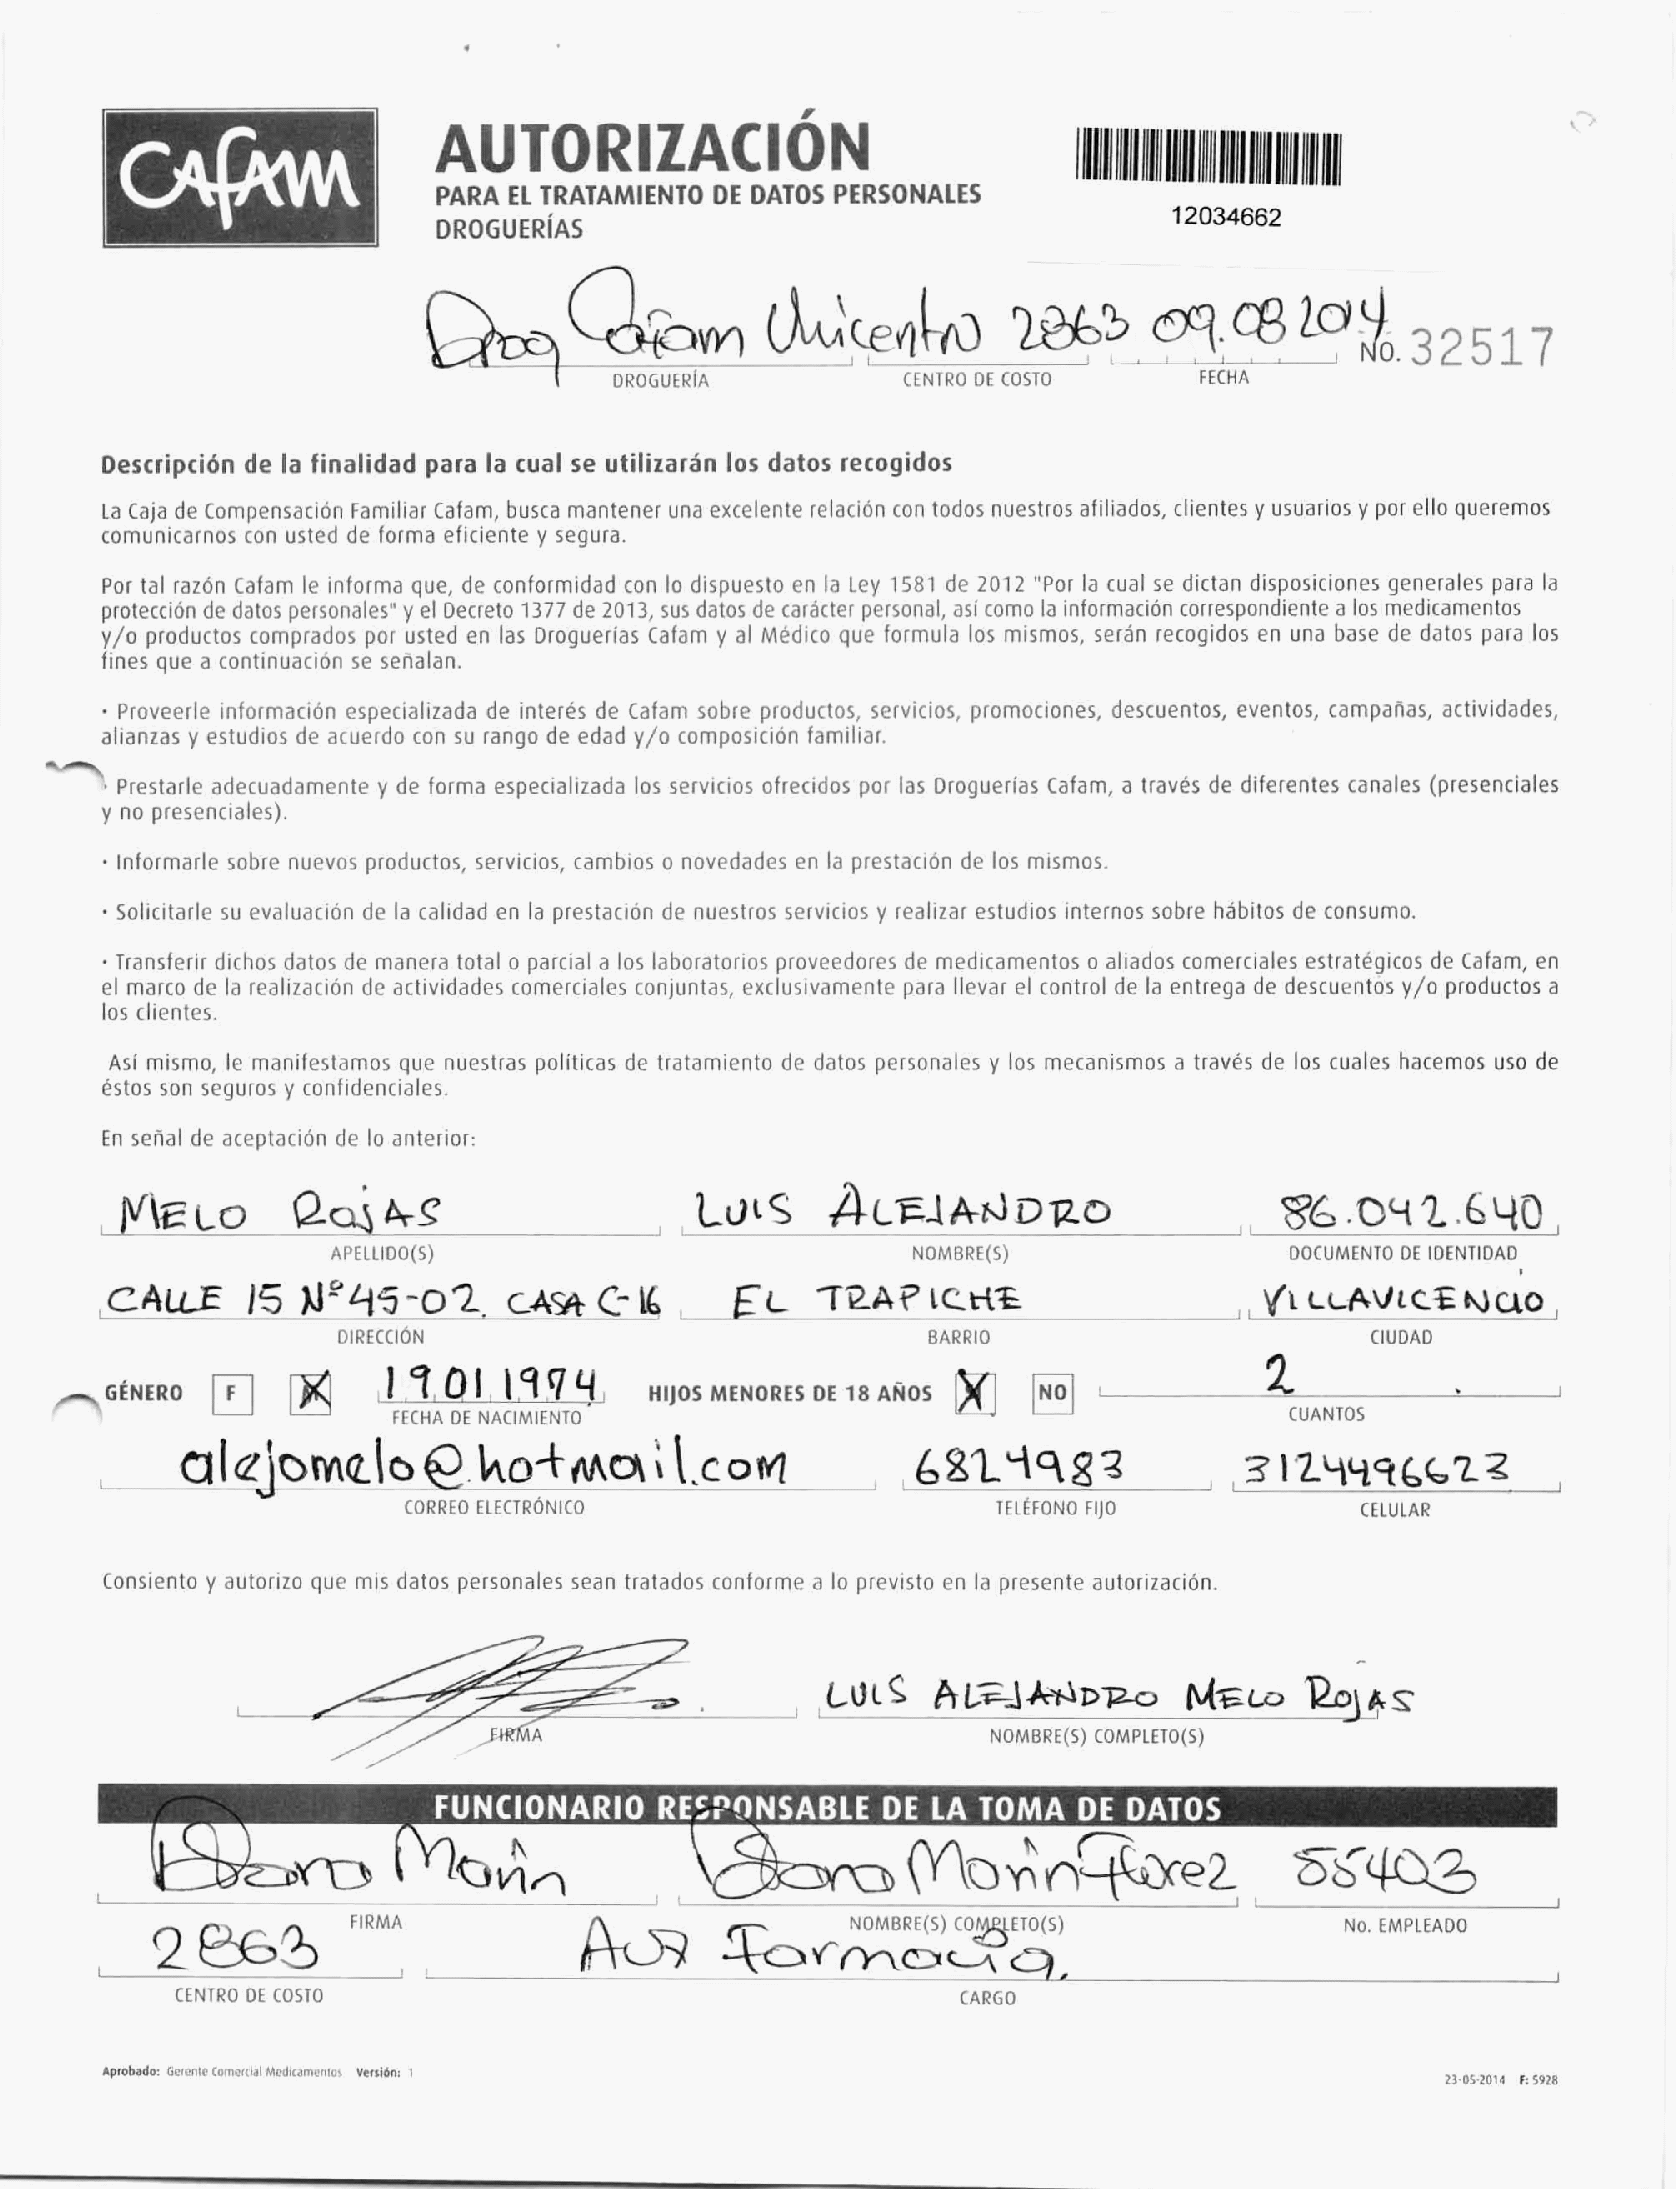 Cafam
AUTORIZACIÓN
PARA EL TRATAMIENTO DE DATOS PERSONALES
DROGUERÍAS
12034662
Drog Cafam Unicentro 2863 09.08 2014
No. 32517
DROGUERÍA CENTRO DE COSTO FECHA
Descripción de la finalidad para la cual se utilizarán los datos recogidos
La Caja de Compensación Familiar Cafam, busca mantener una excelente relación con todos nuestros afiliados, clientes y usuarios y por ello queremos
comunicarnos con usted de forma eficiente y segura.
Por tal razón Cafam le informa que, de conformidad con lo dispuesto en la Ley 1581 de 2012 "Por la cual se dictan disposiciones generales para la
protección de datos personales" y el Decreto 1377 de 2013, sus datos de carácter personal, así como la información correspondiente a los medicamentos
y/o productos comprados por usted en las Droguerías Cafam y al Médico que formula los mismos, serán recogidos en una base de datos para los
fines que a continuación se señalan.
· Proveerle información especializada de interés de Cafam sobre productos, servicios, promociones, descuentos, eventos, campañas, actividades,
alianzas y estudios de acuerdo con su rango de edad y/o composición familiar.
· Prestarle adecuadamente y de forma especializada los servicios ofrecidos por las Droguerías Cafam, a través de diferentes canales (presenciales
y no presenciales).
· Informarle sobre nuevos productos, servicios, cambios o novedades en la prestación de los mismos.
· Solicitarle su evaluación de la calidad en la prestación de nuestros servicios y realizar estudios internos sobre hábitos de consumo.
· Transferir dichos datos de manera total o parcial a los laboratorios proveedores de medicamentos o aliados comerciales estratégicos de Cafam, en
el marco de la realización de actividades comerciales conjuntas, exclusivamente para llevar el control de la entrega de descuentos y/o productos a
los clientes.
Así mismo, le manifestamos que nuestras políticas de tratamiento de datos personales y los mecanismos a través de los cuales hacemos uso de
éstos son seguros y confidenciales.
En señal de aceptación de lo anterior:
MELO ROJAS LUIS ALEJANDRO 86.042.640
APELLIDO(S) NOMBRE(S) DOCUMENTO DE IDENTIDAD
CALLE 15 Nº 45-02. CASA C-16 EL TRAPICHE VILLAVICENCIO
DIRECCIÓN BARRIO CIUDAD
GÉNERO F X 19 01 1974 HIJOS MENORES DE 18 AÑOS X NO 2
FECHA DE NACIMIENTO CUANTOS
alejomelo@hotmail.com 6824983 3124496623
CORREO ELECTRÓNICO TELÉFONO FIJO CELULAR
Consiento y autorizo que mis datos personales sean tratados conforme a lo previsto en la presente autorización.
LUIS ALEJANDRO MELO ROJAS
FIRMA NOMBRE(S) COMPLETO(S)
FUNCIONARIO RESPONSABLE DE LA TOMA DE DATOS
Marin Marin Florez 55403
FIRMA NOMBRE(S) COMPLETO(S) No. EMPLEADO
2863 Aux Farmacia.
CENTRO DE COSTO CARGO
Aprobado: Gerente Comercial Medicamentos Versión: 1
23-05-2014 F: 5928